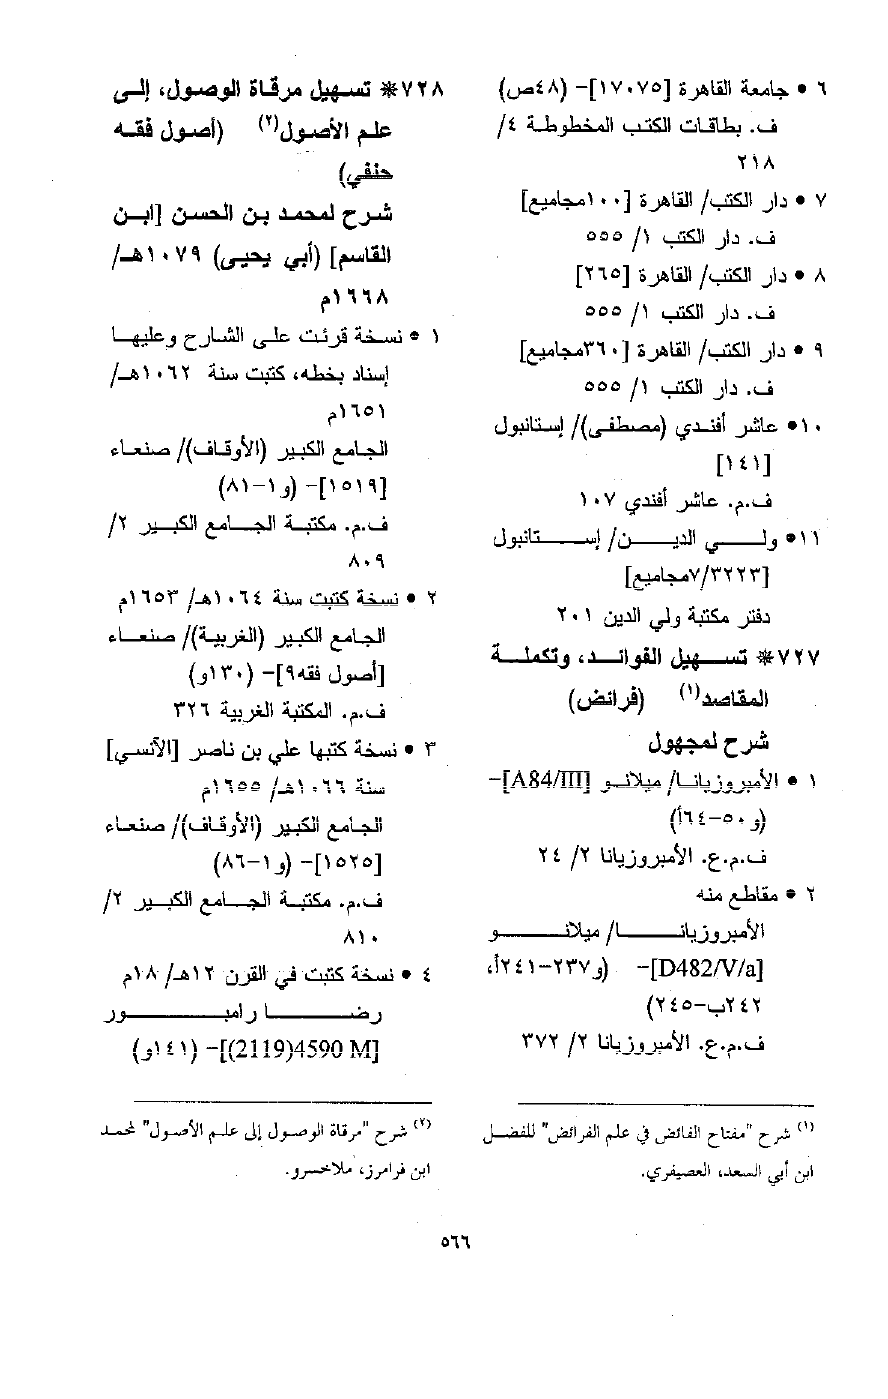 ٦ • جامعة القاهرة [١٧٠٧٥]– (٤٨ص)
ف. بطاقات الكتب المخطوطة ٤/
٢١٨
٧ • دار الكتب/ القاهرة [١٠٠مجاميع]
ف. دار الكتب ١/ ٥٥٥
٨ • دار الكتب/ القاهرة [٢٦٥]
ف. دار الكتب ١/ ٥٥٥
٩ • دار الكتب/ القاهرة [٣٦٠مجاميع]
ف. دار الكتب ١/ ٥٥٥
١٠• عاشر أفندي (مصطفى)/ إستانبول
[١٤١]
ف.م. عاشر أفندي ١٠٧
١١• ولي الدين/ إستانبول
[٧/٣٢٢٣مجاميع]
دفتر مكتبة ولي الدين ٢٠١
٧٢٧* تسهيل الفوائد، وتكملة
المقاصد(١) (فرائض)
شرح لمجهول
١ • الأمبروزيانا/ ميلانو [A84/III]–
(و٥٠–٦٤أ)
ف.م.ع. الأمبروزيانا ٢/ ٢٤
٢ • مقاطع منه
الأمبروزيانا/ ميلانو
[D482/V/a]– (و٢٣٧–٢٤١أ،
٢٤٢ب–٢٤٥)
ف.م.ع. الأمبروزيانا ٢/ ٣٧٢
(١) شرح "مفتاح الفائض في علم الفرائض" للفضل
ابن أبي السعد، العصيفري.
٧٢٨* تسهيل مرقاة الوصول، إلى
علم الأصول(٢) (أصول فقه
حنفي)
شرح لمحمد بن الحسن [ابن
القاسم] (أبي يحيى) ١٠٧٩هـ/
١٦٦٨م
١ • نسخة قرئت على الشارح وعليها
إسناد بخطه، كتبت سنة ١٠٦٢هـ/
١٦٥١م
الجامع الكبير (الأوقاف)/ صنعاء
[١٥١٩]– (و١–٨١)
ف.م. مكتبة الجامع الكبير ٢/
٨٠٩
٢ • نسخة كتبت سنة ١٠٦٤هـ/ ١٦٥٣م
الجامع الكبير (الغربية)/ صنعاء
[أصول فقه٩]– (١٣٠و)
ف.م. المكتبة الغربية ٣٢٦
٣ • نسخة كتبها علي بن ناصر [الآنسي]
سنة ١٠٦٦هـ/ ١٦٥٥م
الجامع الكبير (الأوقاف)/ صنعاء
[١٥٢٥]– (و١–٨٦)
ف.م. مكتبة الجامع الكبير ٢/
٨١٠
٤ • نسخة كتبت في القرن ١٢هـ/ ١٨م
رضا رامبور
[4590 M(2119)]– (١٤١و)
(٢) شرح "مرقاة الوصول إلى علم الأصول" لمحمد
ابن فرامرز، ملاخسرو.
٥٦٦